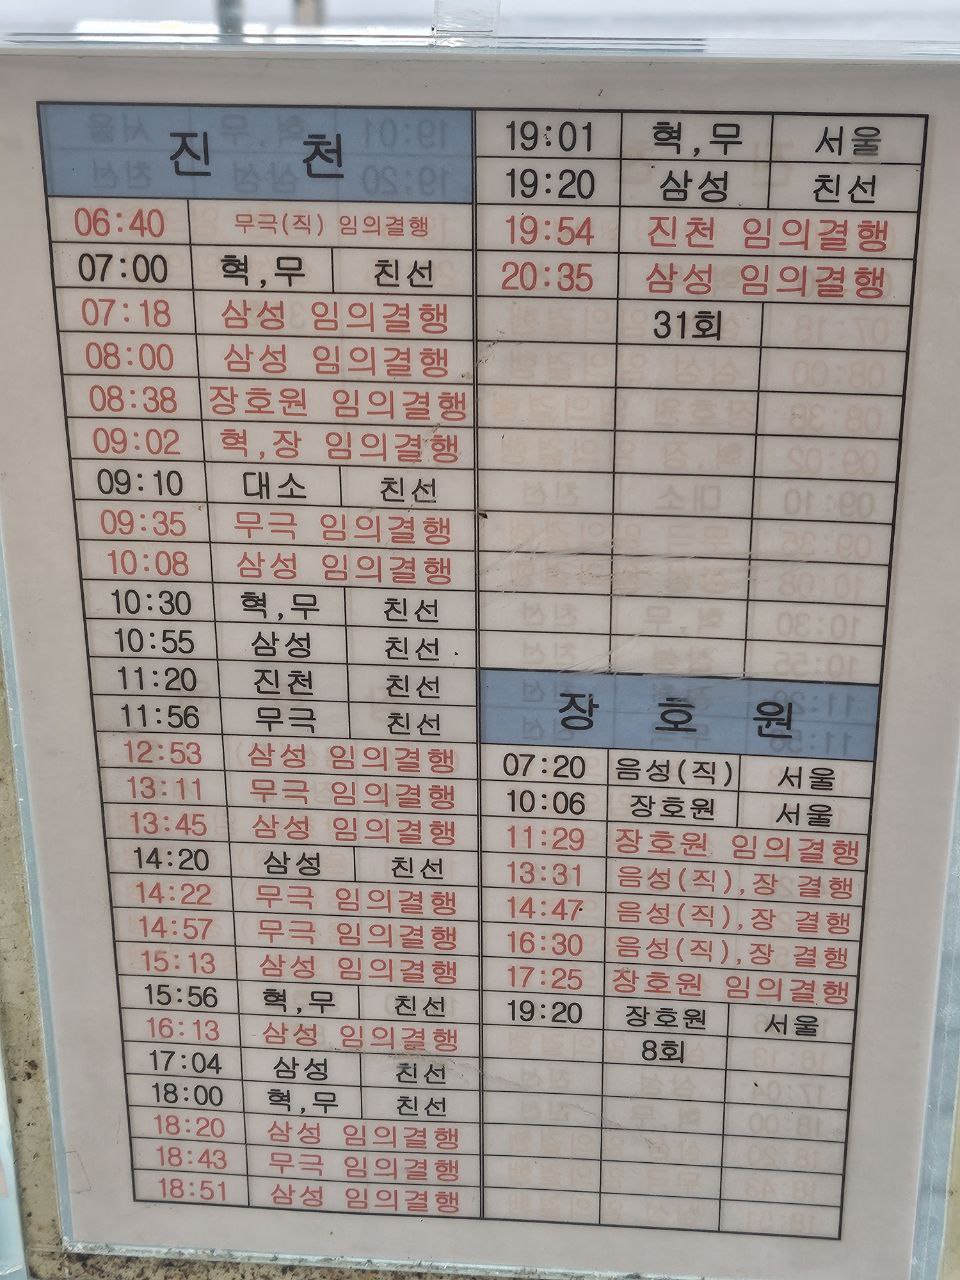 진 천
06:40 무극(직) 임의결행
07:00 혁,무 친선
07:18 삼성 임의결행
08:00 삼성 임의결행
08:38 장호원 임의결행
09:02 혁,장 임의결행
09:10 대소 친선
09:35 무극 임의결행
10:08 삼성 임의결행
10:30 혁,무 친선
10:55 삼성 친선
11:20 진천 친선
11:56 무극 친선
12:53 삼성 임의결행
13:11 무극 임의결행
13:45 삼성 임의결행
14:20 삼성 친선
14:22 무극 임의결행
14:57 무극 임의결행
15:13 삼성 임의결행
15:56 혁,무 친선
16:13 삼성 임의결행
17:04 삼성 친선
18:00 혁,무 친선
18:20 삼성 임의결행
18:43 무극 임의결행
18:51 삼성 임의결행
19:01 혁,무 서울
19:20 삼성 친선
19:54 진천 임의결행
20:35 삼성 임의결행
31회
장 호 원
07:20 음성(직) 서울
10:06 장호원 서울
11:29 장호원 임의결행
13:31 음성(직),장 결행
14:47 음성(직),장 결행
16:30 음성(직),장 결행
17:25 장호원 임의결행
19:20 장호원 서울
8회